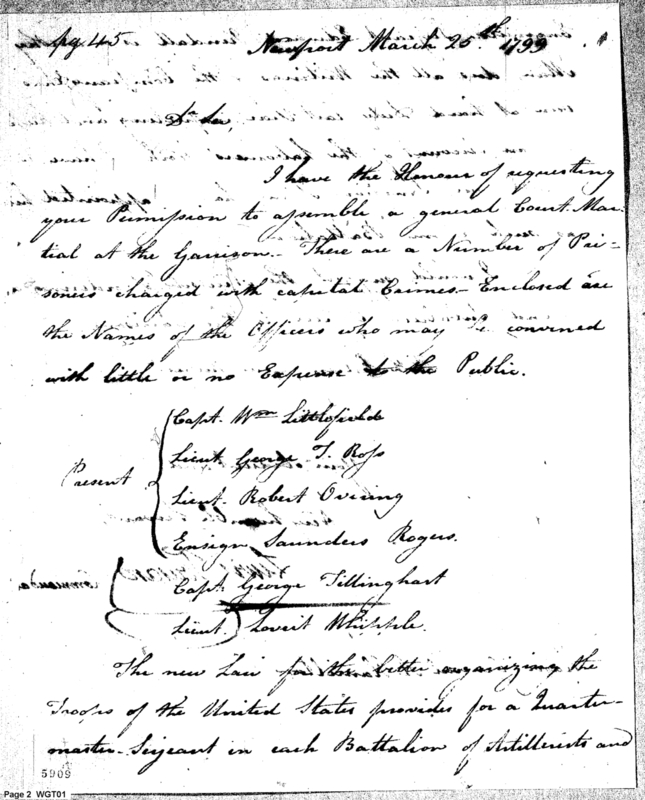 pg. 45
Newport March 26th 1799
Sir,
I have the Honour of requesting
your Permission to assemble a general Court Mar-
tial at the Garrison - There are a Number of Pri-
soners charged with capital Crimes - Enclosed are
the Names of the Officers who may be convened
with little or no Expense to the Public.
Capt. Wm Littlefield
Lieut. George T. Ross
Present
Lieut. Robert Overing
Ensign Saunders Rogers.
Capt. George Tillinghast
Lieut. Lovett Whipple.
The new Law for the better organizing the
Troops of the United States provides for a Quarter-
master-Serjeant in each Battalion of Artillerists and
5909
Page 2 WGT01